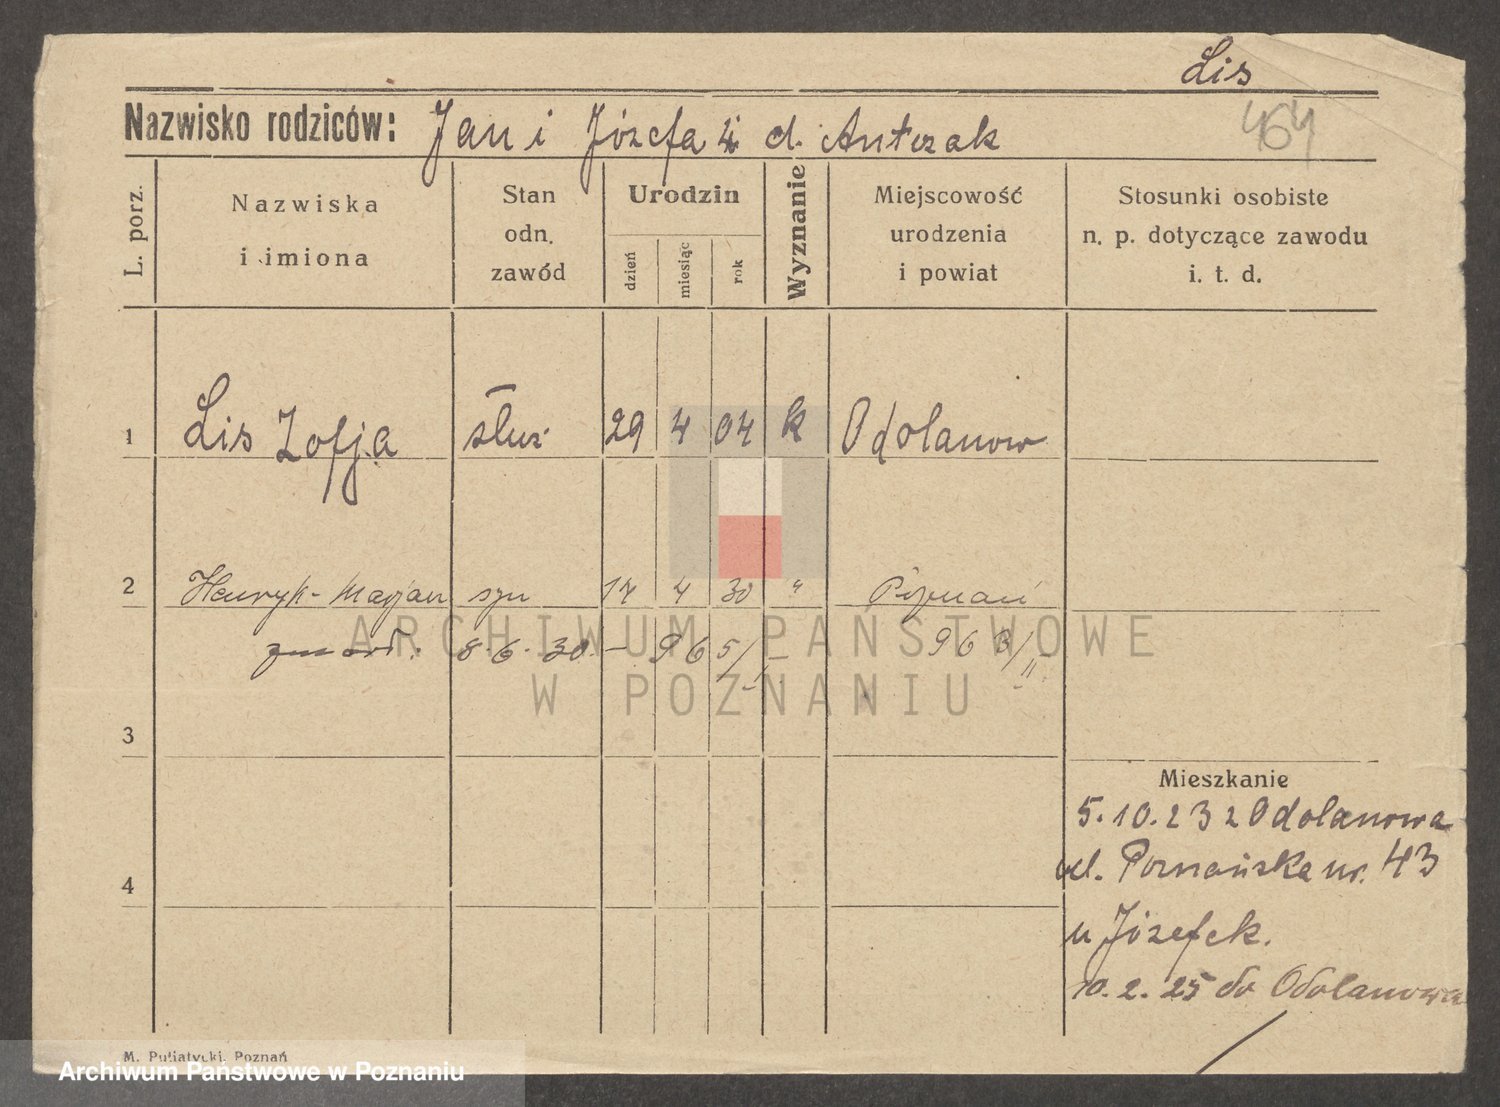 Lis
464
Nazwisko rodziców: Jan i Józefa z d. Antczak
L. porz.
Nazwiska
i imiona
Stan
odn.
zawód
Urodzin
dzień
miesiąc
rok
Wyznanie
Miejscowość
urodzenia
i powiat
Stosunki osobiste
n. p. dotyczące zawodu
i. t. d.
1 Lis Zofja służ 29 4 04 k Odolanow
2 Henryk-Marjan syn 17 4 30 " Poznań
zmarł. 8.6.30. - 965/ 963/II
3
Mieszkanie
5.10.23 z Odolanowa
ul. Poznańska nr. 43
4
u Józefek.
10.2.25 do Odolanowa
M. Puljatycki, Poznań
ARCHIWUM PAŃSTWOWE
W POZNANIU
Archiwum Państwowe w Poznaniu